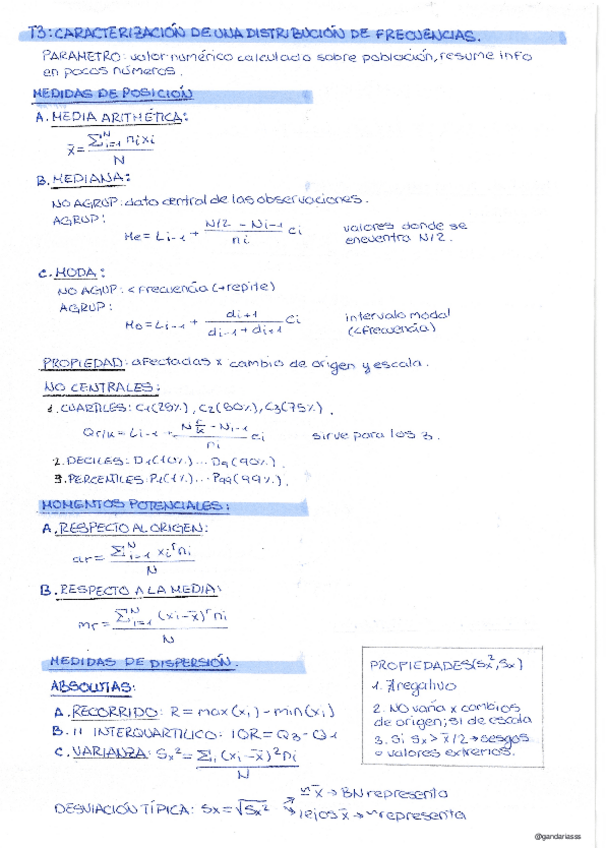 T3: CARACTERIZACIÓN DE UNA DISTRIBUCIÓN DE FRECUENCIAS.
PARÁMETRO: valor numérico calculado sobre población, resume info
en pocos números.
MEDIDAS DE POSICIÓN
A. MEDIA ARITMÉTICA:
x̄ = Σᵢ₌₁ᴺ nᵢxᵢ / N
B. MEDIANA:
NO AGRUP: dato central de las observaciones.
AGRUP:
Me = Li-1 + (N/2 - Ni-1 / ni) ci valores donde se
encuentra N/2.
C. MODA:
NO AGUP: < frecuencia (→repite)
AGRUP:
Mo = Li-1 + (di+1 / di-1 + di+1) ci intervalo modal
(<frecuencia)
PROPIEDAD: afectadas x cambio de origen y escala.
NO CENTRALES:
1. CUARTILES: C1(25%), C2(50%), C3(75%).
Qr/k = Li-1 + (N r/k - Ni-1 / ni) ci sirve para los 3.
2. DECILES: D1(10%)... D9(90%).
3. PERCENTILES: P1(1%)... P99(99%).
MOMENTOS POTENCIALES:
A. RESPECTO AL ORIGEN:
ar = Σᵢ₌₁ᴺ xiʳni / N
B. RESPECTO A LA MEDIA:
mr = Σᵢ₌₁ᴺ (xi-x̄)ʳni / N
MEDIDAS DE DISPERSIÓN.
ABSOLUTAS:
A. RECORRIDO: R = max(xi) - min(xi)
B. II INTERQUARTÍLICO: IQR = Q3 - Q1
C. VARIANZA: Sx² = Σ (xi - x̄)²ni / N
DESVIACIÓN TÍPICA: Sx = √Sx² x̄ → BN representa
lejos x̄ → representa
PROPIEDADES (Sx², Sx)
1. ∄ negativo
2. NO varía x cambios
de origen; si de escala
3. Si Sx > x̄/2 → sesgos
o valores extremos.
@gandariasss